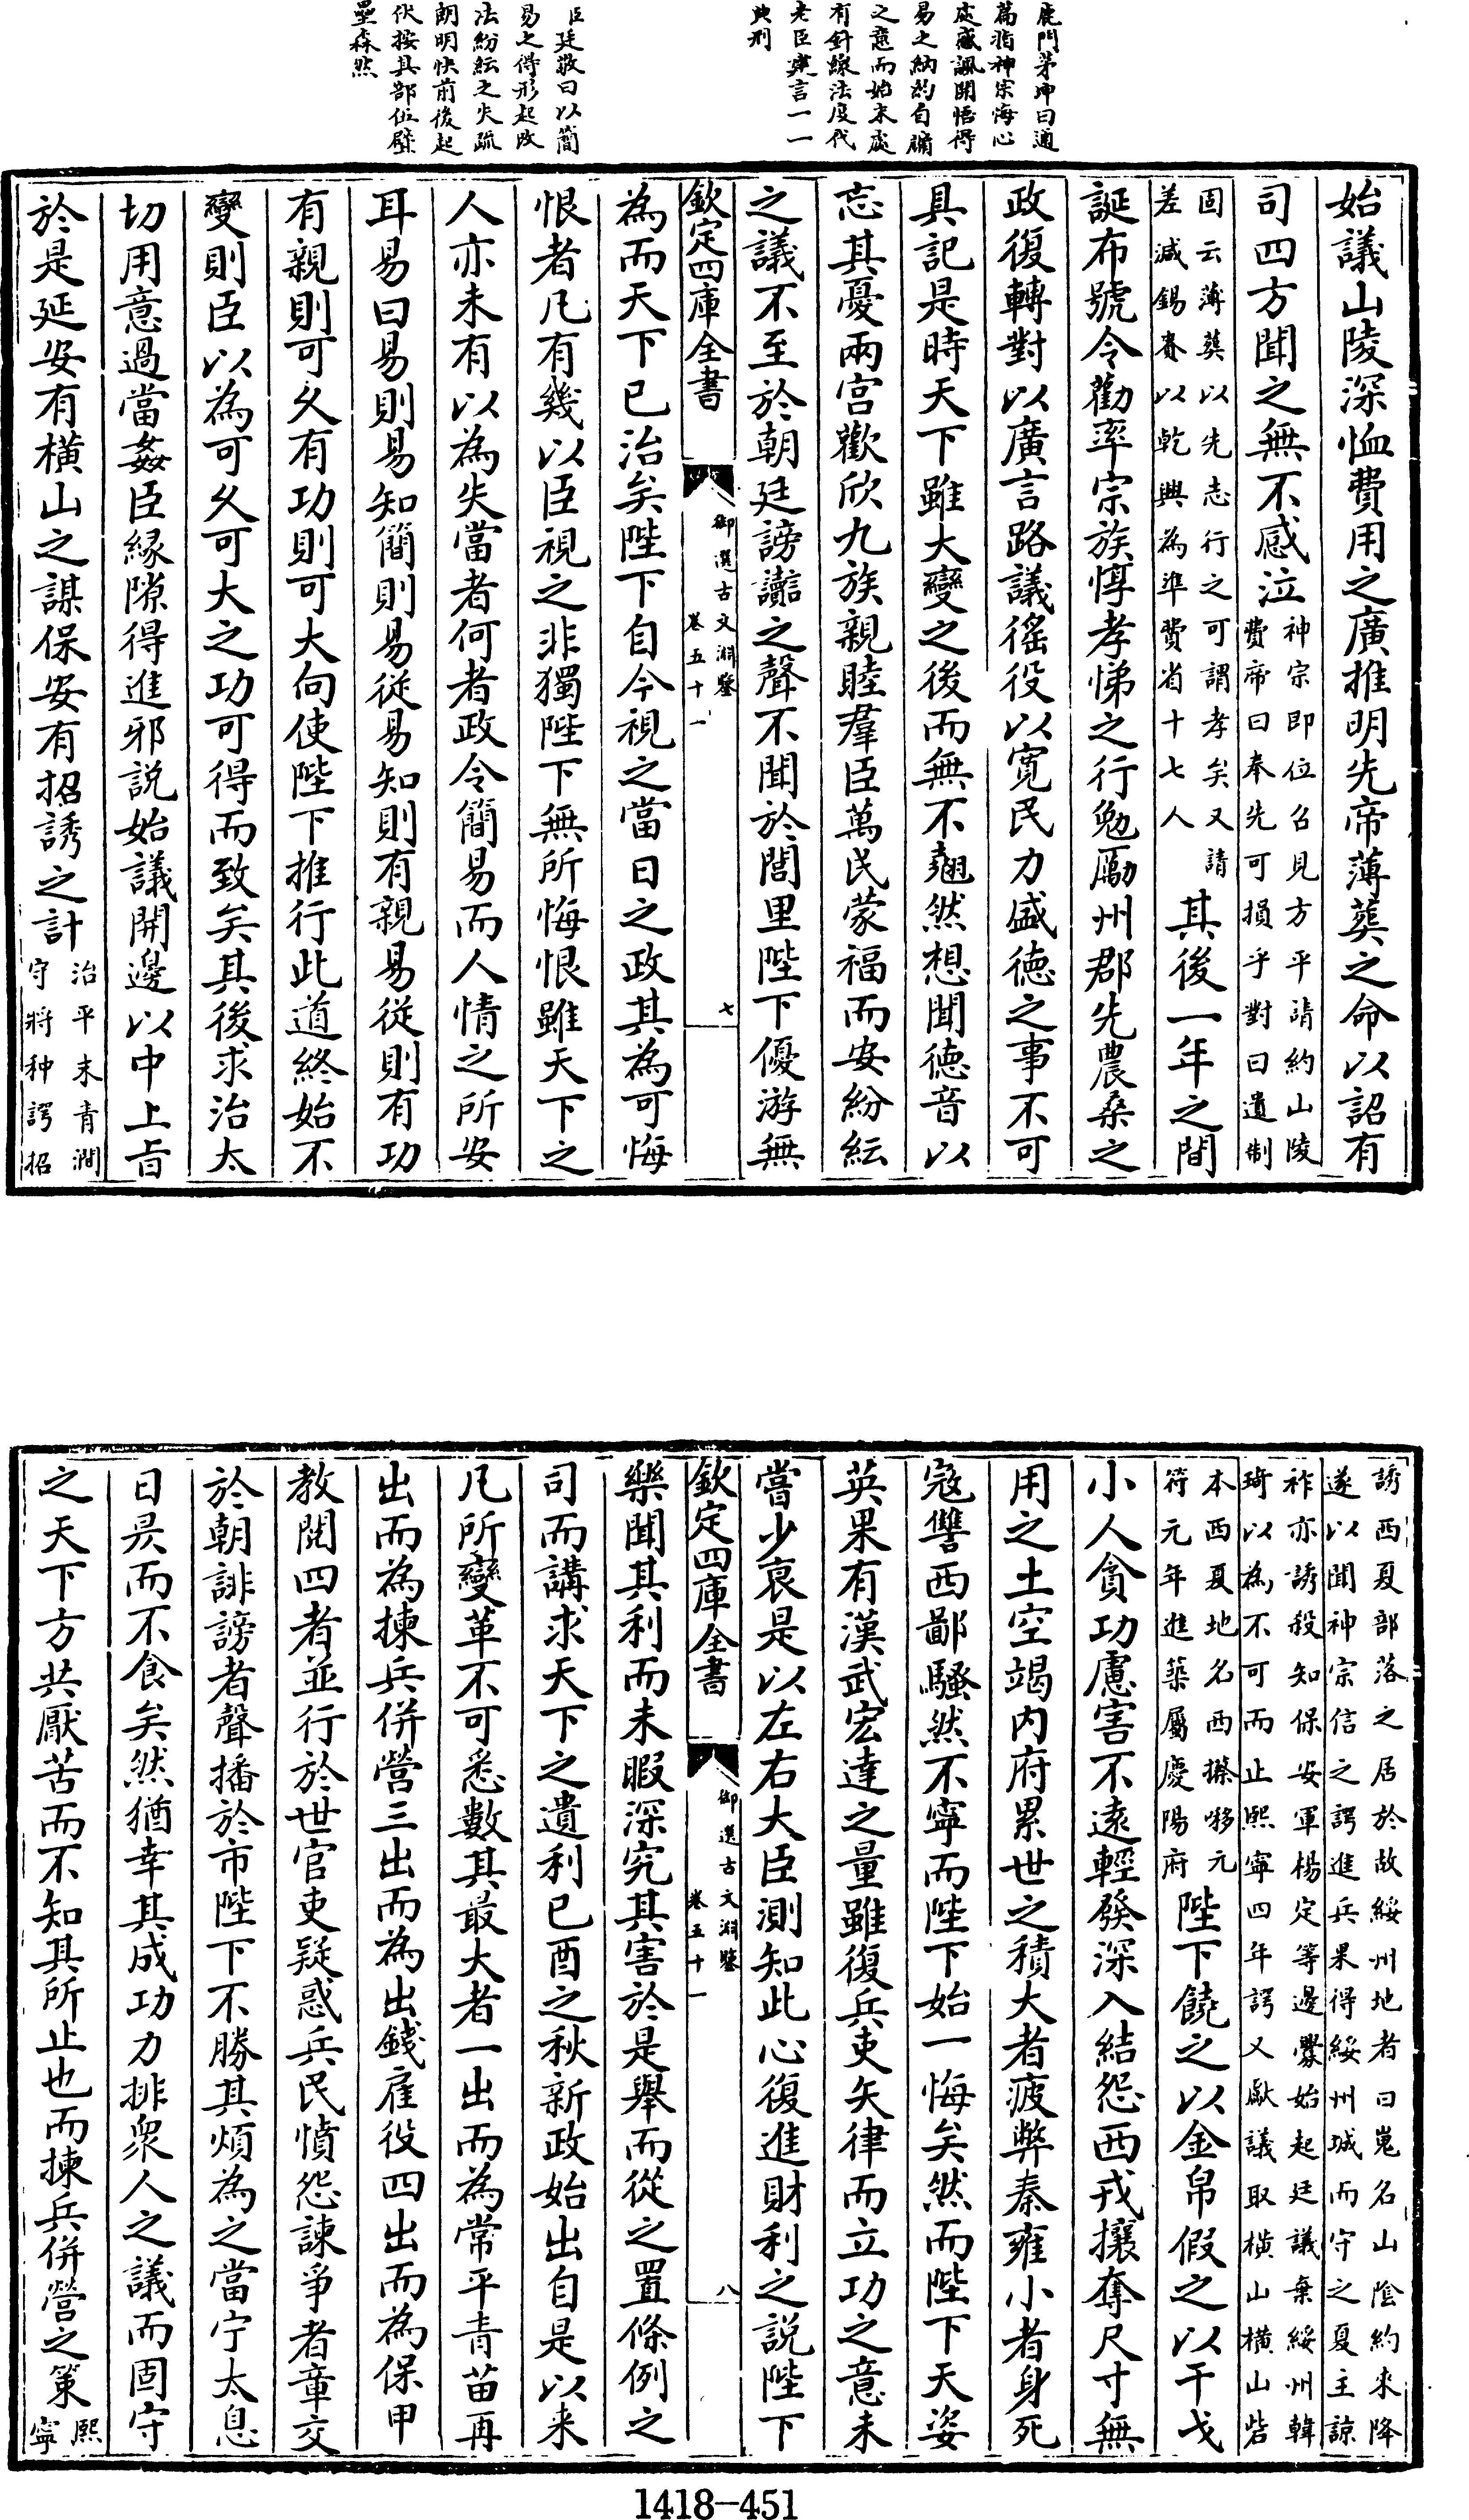 鹿門茅坤曰通
篇指神宗悔心
處感諷開悟得
易之納約自牖
之意而始末處
有針線法度代
老臣建言一一
典刑
臣廷敬曰以簡
易之得形起改
法紛紜之失疏
朗明快前後起
伏按其部伍壁
壘森然
始議山陵深恤費用之廣推明先帝薄葬之命以詔有
司四方聞之無不感泣神宗即位召見方平請約山陵
費帝曰奉先可損乎對曰遺制
固云薄葬以先志行之可謂孝矣又請
差減錫賚以乾興為準費省十七人其後一年之間
誕布號令勸率宗族惇孝悌之行勉勵州郡先農桑之
政復轉對以廣言路議徭役以寬民力盛德之事不可
具記是時天下雖大變之後而無不翹然想聞德音以
忘其憂兩宮歡欣九族親睦羣臣萬民蒙福而安紛紜
之議不至於朝廷謗讟之聲不聞於閭里陛下優游無
欽定四庫全書
御選古文淵鑒
卷五十一
七
為而天下已治矣陛下自今視之當日之政其為可悔
恨者凡有幾以臣視之非獨陛下無所悔恨雖天下之
人亦未有以為失當者何者政令簡易而人情之所安
耳易曰易則易知簡則易從易知則有親易從則有功
有親則可久有功則可大向使陛下推行此道終始不
變則臣以為可久可大之功可得而致矣其後求治太
切用意過當姦臣緣隙得進邪說始議開邊以中上旨
於是延安有橫山之謀保安有招誘之計治平末青澗
守將种諤招
誘西夏部落之居於故綏州地者曰嵬名山陰約來降
遂以聞神宗信之諤進兵果得綏州城而守之夏主諒
祚亦誘殺知保安軍楊定等邊釁始起廷議棄綏州韓
琦以為不可而止熙寧四年諤又獻議取橫山橫山砦
本西夏地名西㩙哆元
符元年進築屬慶陽府陛下饒之以金帛假之以干戈
小人貪功慮害不遠輕發深入結怨西戎攘奪尺寸無
用之土空竭內府累世之積大者疲弊秦雍小者身死
寇讐西鄙騷然不寧而陛下始一悔矣然而陛下天姿
英果有漢武宏達之量雖復兵吏失律而立功之意未
嘗少衰是以左右大臣測知此心復進財利之說陛下
欽定四庫全書
御選古文淵鑒
卷五十一
八
樂聞其利而未暇深究其害於是舉而從之置條例之
司而講求天下之遺利已酉之秋新政始出自是以来
凡所變革不可悉數其最大者一出而為常平青苗再
出而為揀兵併營三出而為出錢雇役四出而為保甲
教閱四者並行於世官吏疑惑兵民憤怨諫爭者章交
於朝誹謗者聲播於市陛下不勝其煩為之當宁太息
日昃而不食矣然猶幸其成功力排衆人之議而固守
之天下方共厭苦而不知其所止也而揀兵併營之策熙
寧
1418-451